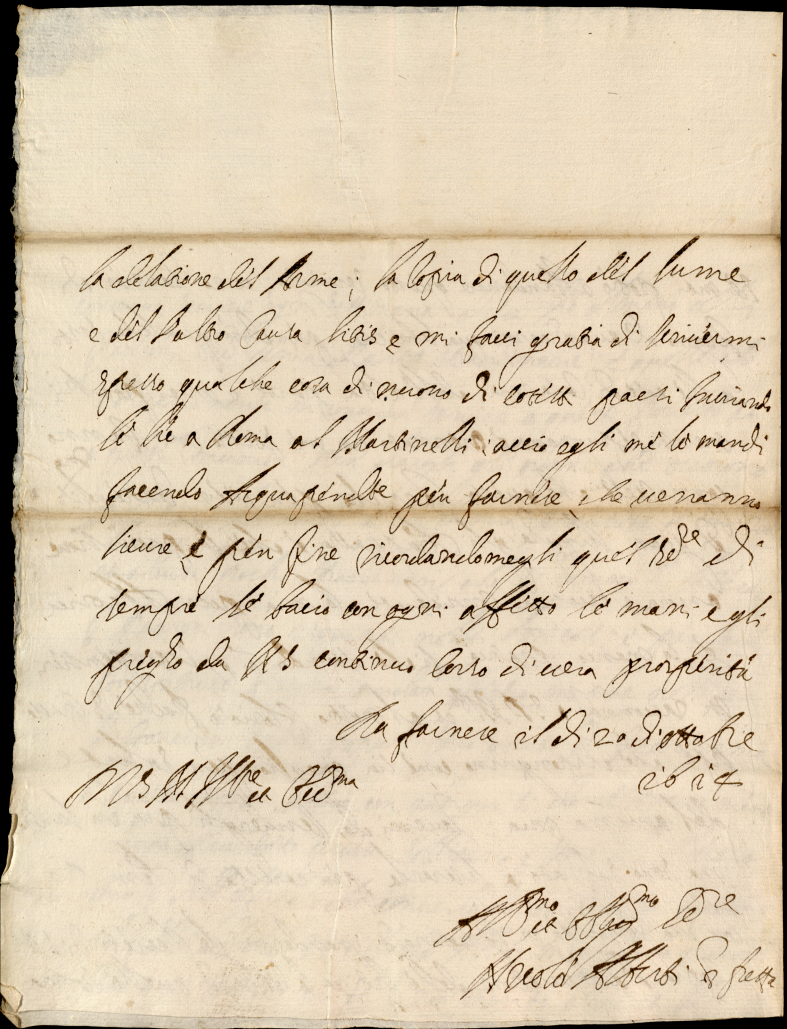 la delatione del lume; la copia di quello del lume
e del Salvo Causa litis e mi facci gratia di scrivermi
spesso qualche cosa di nuovo di cotesti paesi inviando
le lre a Roma al Martinelli, accio egli me le mandi
facendo Acquapendte per farnese, che verranno
sicure e per fine ricordandomegli quel sre di
sempre le bacio con ogni affetto le mani e gli
prego da continuo corso di vera prosperità
Da farnese il di 20 di ottobre
1614
Di VS Ill et
Aff mo et Obligmo Sre
Alberti